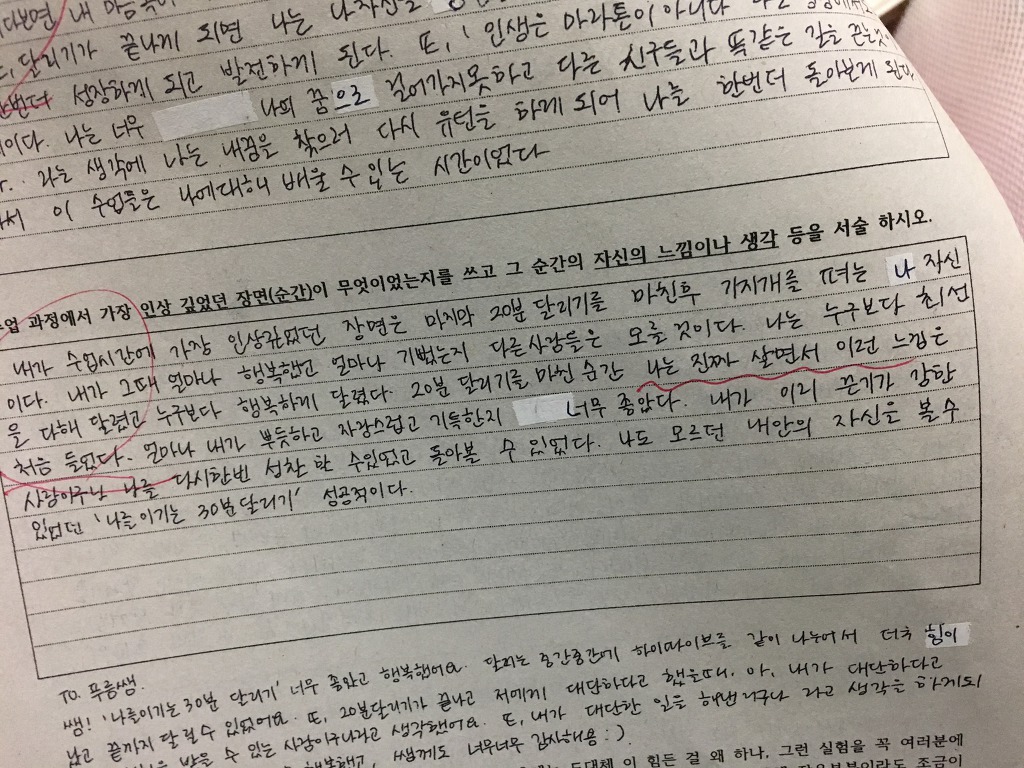 내 마음속
달리기가 끝나게 되면 나는 나자신을
한번더 성장하게 되고 발전하게 된다. 또, '인생은 마라톤이 아니다'
이다. 나는 너무 나의 꿈으로 걸어가지못하고 다른 친구들과 똑같은 길을
라는 생각에 나는 내꿈을 찾으러 다시 유턴을 하게 되어 나를 한번더 돌아보게 된다.
이 수업들은 나에대해 배울 수 있는 시간이었다
과정에서 가장 인상 깊었던 장면(순간)이 무엇이었는지를 쓰고 그 순간의 자신의 느낌이나 생각 등을 서술 하시오.
내가 수업시간에 가장 인상깊었던 장면은 마지막 20분 달리기를 마친후 기지개를 떠는 나 자신
이다. 내가 그때 얼마나 행복했고 얼마나 기뻤는지 다른사람들은 모를 것이다. 나는 누구보다 최선
을 다해 달렸고 누구보다 행복하게 달렸다. 20분 달리기를 마친 순간 나는 진짜 살면서 이런 느낌은
처음 들었다. 얼마나 내가 뿌듯하고 자랑스럽고 기특한지 너무 좋았다. 내가 이리 끈기가 강한
사람이구나 나를 다시한번 성찰 할 수있었고 돌아볼 수 있었다. 나도 모르던 내안의 자신을 볼수
있었던 '나를이기는 30분달리기' 성공적이다.
TO. 푸름쌤.
쌤! '나를이기는 30분 달리기' 너무 좋았고 행복했어요. 달리는 중간중간에 하이파이브를 같이 나누어서 더욱 힘이
났고 끝까지 달릴수 있었어요. 또, 20분달리기가 끝나고 저에게 대단하다고 했을때, 아, 내가 대단하다고
받을 수 있는 사람이구나라고 생각했어요. 또, 내가 대단한 일을 해낸거구나 라고 생각을 하게되
행복했고, 쌤께도 너무너무 감사해용 : )
도대체 이 힘든 걸 왜 하나, 그런 실험을 꼭 여러분에